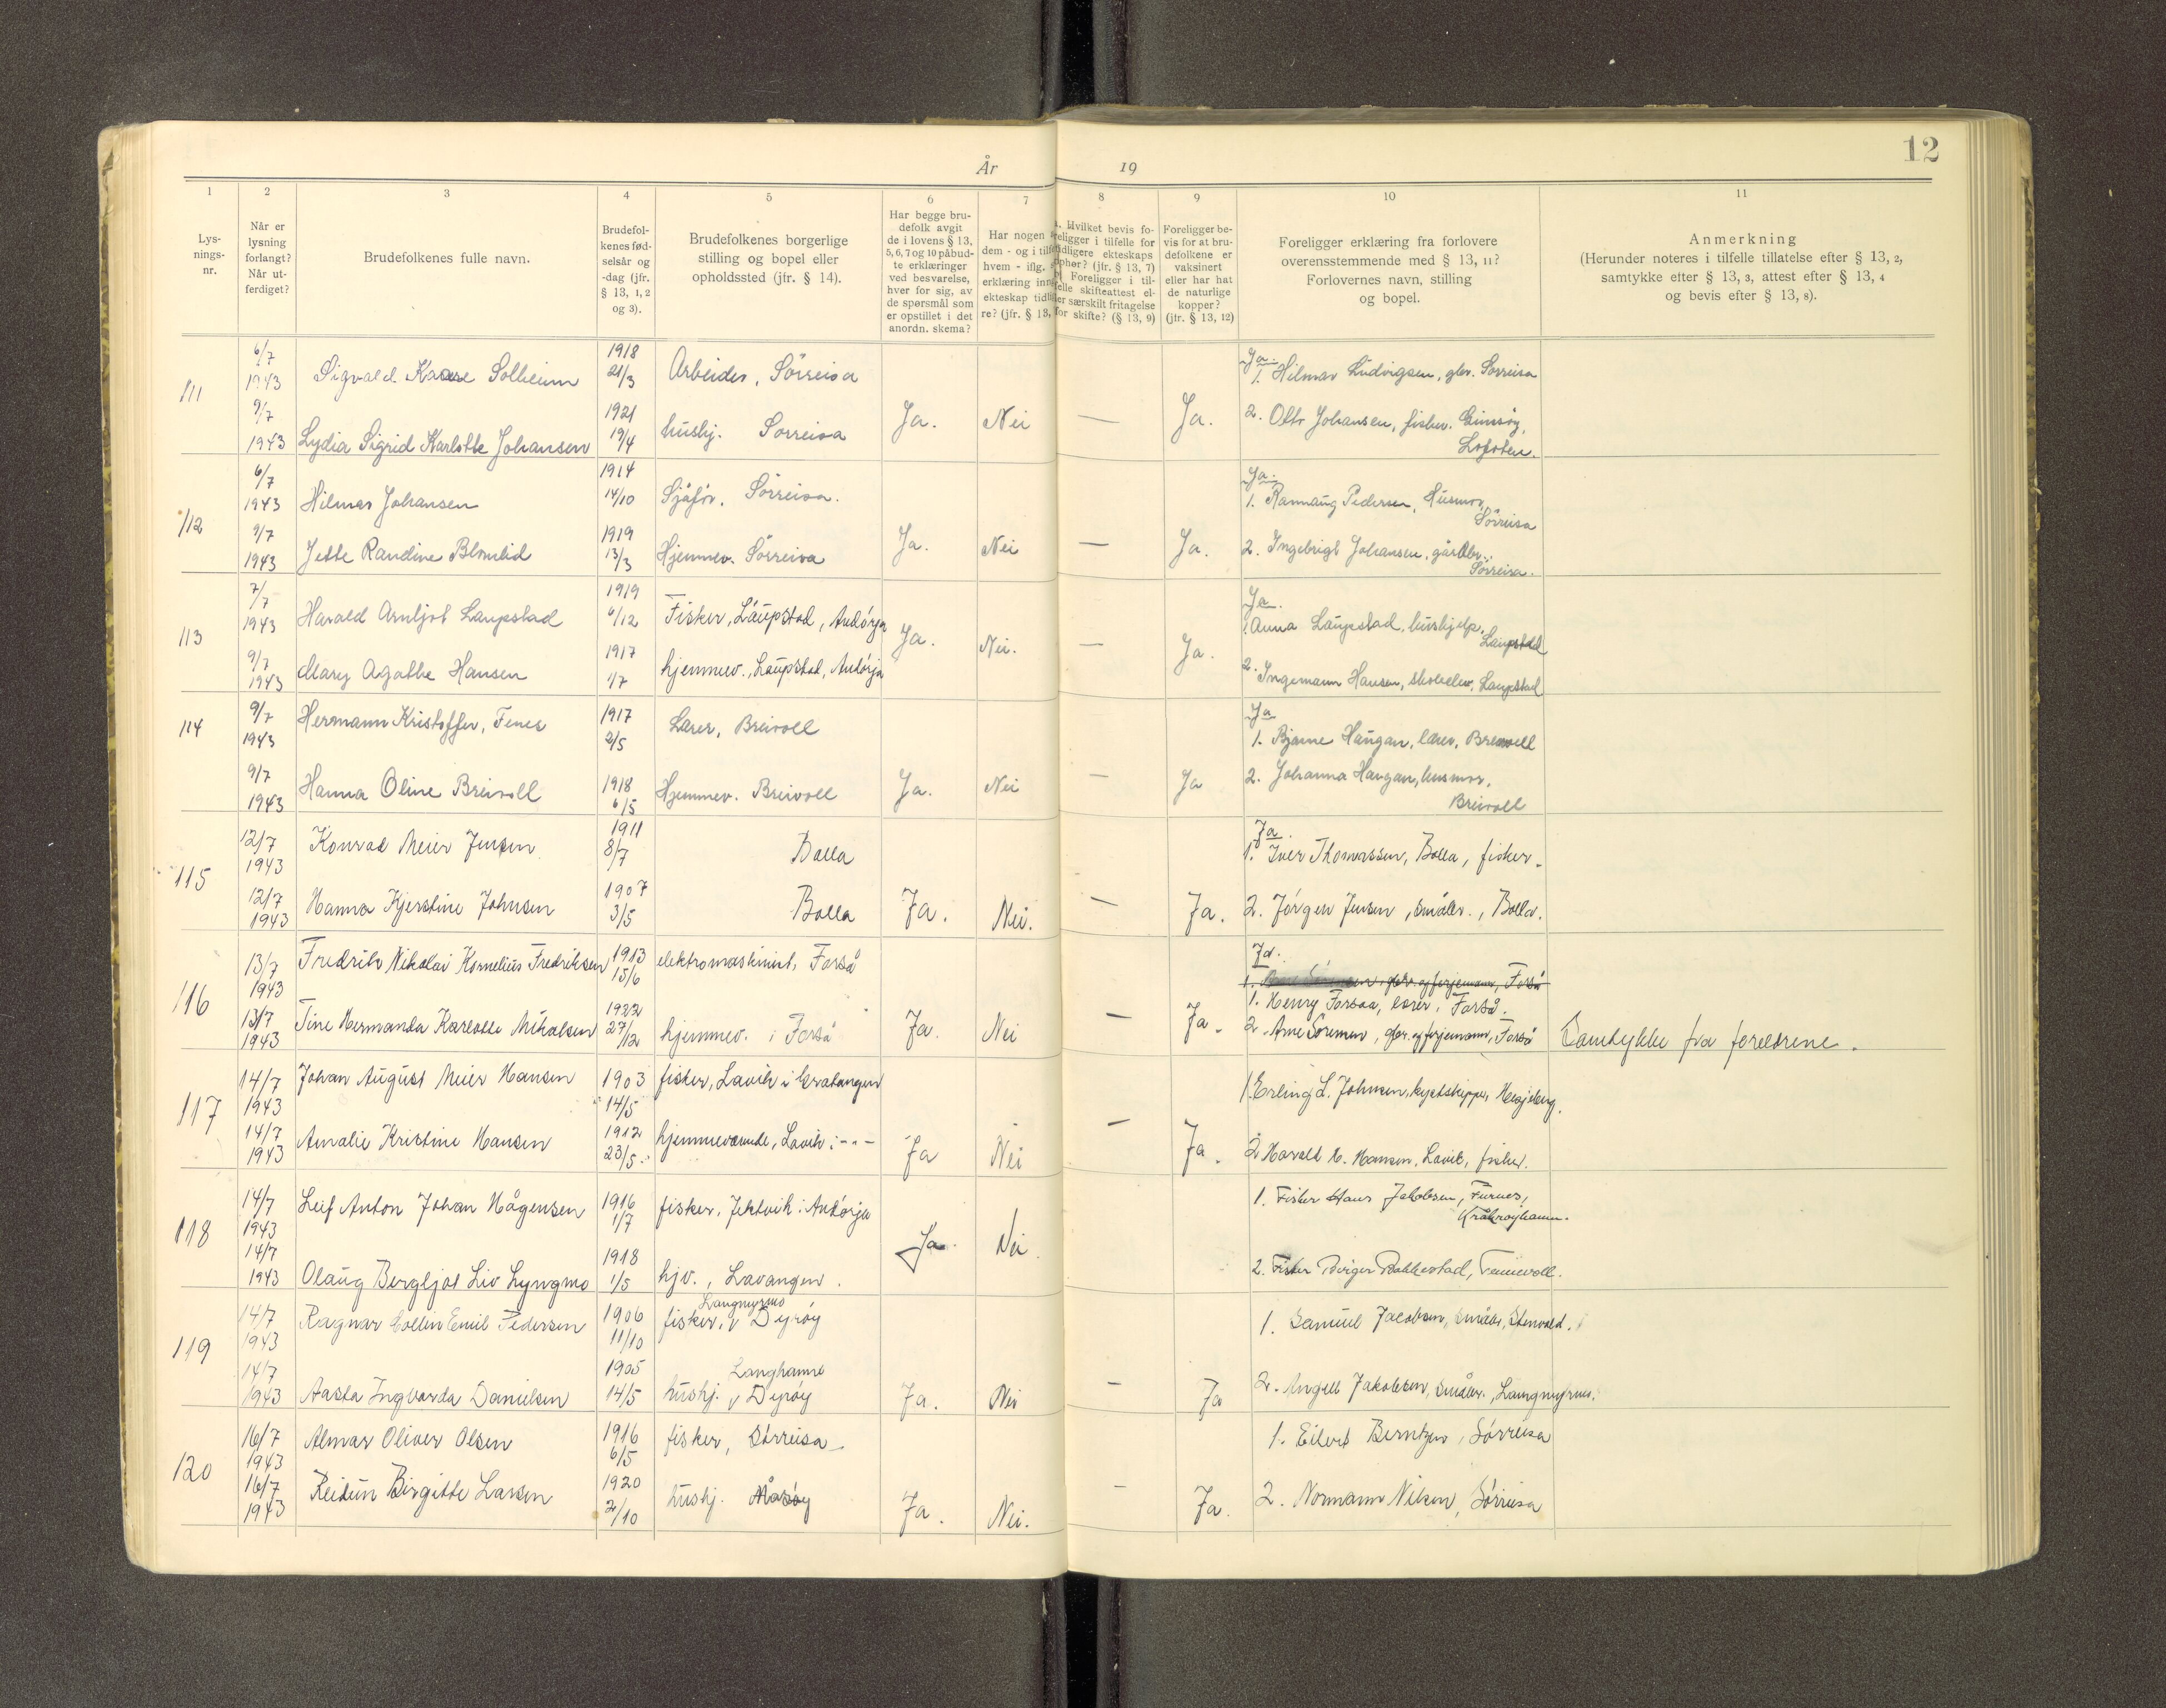 12
År 19
1 2 3 4 5 6 7 8 9 10 11
Lys-
nings-
nr.
Når er
lysning
forlangt?
Når ut-
ferdiget?
Brudefolkenes fulle navn.
Brudefol-
kenes fød-
selsår og
-dag (jfr.
§ 13, 1, 2
og 3).
Brudefolkenes borgerlige
stilling og bopel eller
opholdssted (jfr. § 14).
Har begge bru-
defolk avgit
de i lovens § 13,
5, 6, 7 og 10 påbud-
te erklæringer
ved besvarelse,
hver for sig, av
de spørsmål som
er opstillet i det
anordn. skema?
Har nogen
dem - og i tilf
hvem - iflg.
erklæring inn
ekteskap tidl
re? (jfr. § 13,
Hvilket bevis fo-
religger i tilfelle for
tidligere ekteskaps
ophør? (jfr. § 13, 7)
Foreligger i til-
felle skifteattest el-
ler særskilt fritagelse
for skifte? (§ 13, 9)
Foreligger be-
vis for at bru-
defolkene er
vaksinert
eller har hat
de naturlige
kopper?
(jfr. § 13, 12)
Foreligger erklæring fra forlovere
overensstemmende med § 13, 11?
Forlovernes navn, stilling
og bopel.
Anmerkning
(Herunder noteres i tilfelle tillatelse efter § 13, 2,
samtykke efter § 13, 3, attest efter § 13, 4
og bevis efter § 13, 8).
111
6/7
1943
Sigvald Kaare Solheim
1918
21/3
Arbeider, Sörreisa
9/7
1943
Lydia Sigrid Karlotte Johansen
1921
19/4
hushj. Sorreisa
Ja. Nei — Ja.
Ja.
1. Hilmar Ludvigsen, gbr. Sorreisa
2. Otto Johansen, fisker. Gimsöy,
Lofoten.
112
6/7
1943
Hilmar Johansen
1914
14/10
Sjåför. Sörreisa.
9/7
1943
Jette Randine Blomlid
1919
13/3
Hjemmev. Sörreisa
Ja. Nei — Ja.
Ja.
1. Rannaug Pedersen, Husmor,
Sörreisa
2. Ingebrigt Johansen, gårdbr.
Sörreisa.
113
7/7
1943
Harald Arnljot Laupstad
1919
6/12
Fisker, Laupstad, Andörja
9/7
1943
Mary Agathe Hansen
1917
1/7
hjemmev., Laupstad, Andörja
Ja. Nei. — Ja.
Ja.
1. Anna Laupstad, hushjelp.
Laupstad
2. Ingemann Hansen, skoelev, Laupstad
114
9/7
1943
Hermann Kristoffer, Fenes
1917
2/5
Lærer, Breivoll
9/7
1943
Hanna Oline Breivoll
1918
6/5
Hjemmev. Breivoll
Ja. Nei — Ja
Ja
1. Bjarne Haugan, lærer, Breivoll
2. Johanna Haugan, husmor,
Breivoll
115
12/7
1943
Konrad Meier Jensen
1911
8/7
Bolla
12/7
1943
Hanna Kjerstine Johnsen
1907
3/5
Bolla
Ja. Nei. — Ja.
Ja.
1. Iver Thomassen, Bolla, fisker.
2. Jörgen Jensen, småbr., Bolla.
116
13/7
1943
Fredrik Nikolai Kornelius Fredriksen
1913
15/6
elektromaskinist, Forså
13/7
1943
Tine Hermanda Karlotte Mikalsen
1922
27/12
hjemmev. i Forså
Ja. Nei — Ja.
Ja.
gbr. og ferjemann, Forså
1. Henry Forsaa, lærer, Forså.
2. Arne Sörensen, gbr. og ferjemann, Forså
Samtykke fra foreldrene.
117
14/7
1943
Johan August Meier Hansen
1903
14/5
fisker, Lavik i Gratangen
14/7
1943
Amalie Kristine Hansen
1912
23/5
hjemmeværende, Lavik i -"-
Ja Nei — Ja.
1. Erling L. Johnsen, kystskipper,
2. Harald H. Hansen, Lavik, fisker.
118
14/7
1943
Leif Anton Johan Hågensen
1916
1/7
fisker, Jektvik i Andörja
14/7
1943
Olaug Bergljot Liv Lyngmo
1918
1/5
hjv., Lavangen.
Ja. Nei.
1. Fisker Hans Jakobsen, Furnes,
Kråkröyhamn.
2. Fisker Birger Bakkestad, Tennevoll.
119
14/7
1943
Ragnar Collin Emil Pedersen
1906
11/10
Langmyrmo
fisker, v Dyröy
14/7
1943
Aasta Ingvarda Danielsen
1905
14/5
Langhamn
hushj. v Dyröy
Ja. Nei — Ja
1. Samuel Jacobsen, småbr.,
2. Angell Jakobsen, småbr., Langmyrmo.
120
16/7
1943
Almar Oliver Olsen
1916
6/5
fisker, Sörreisa
16/7
1943
Reidun Birgitte Larsen
1920
2/10
hushj. Måsöy
Ja. Nei. — Ja.
1. Eilert Berntzen, Sörreisa
2. Normann Nilsen, Sörreisa